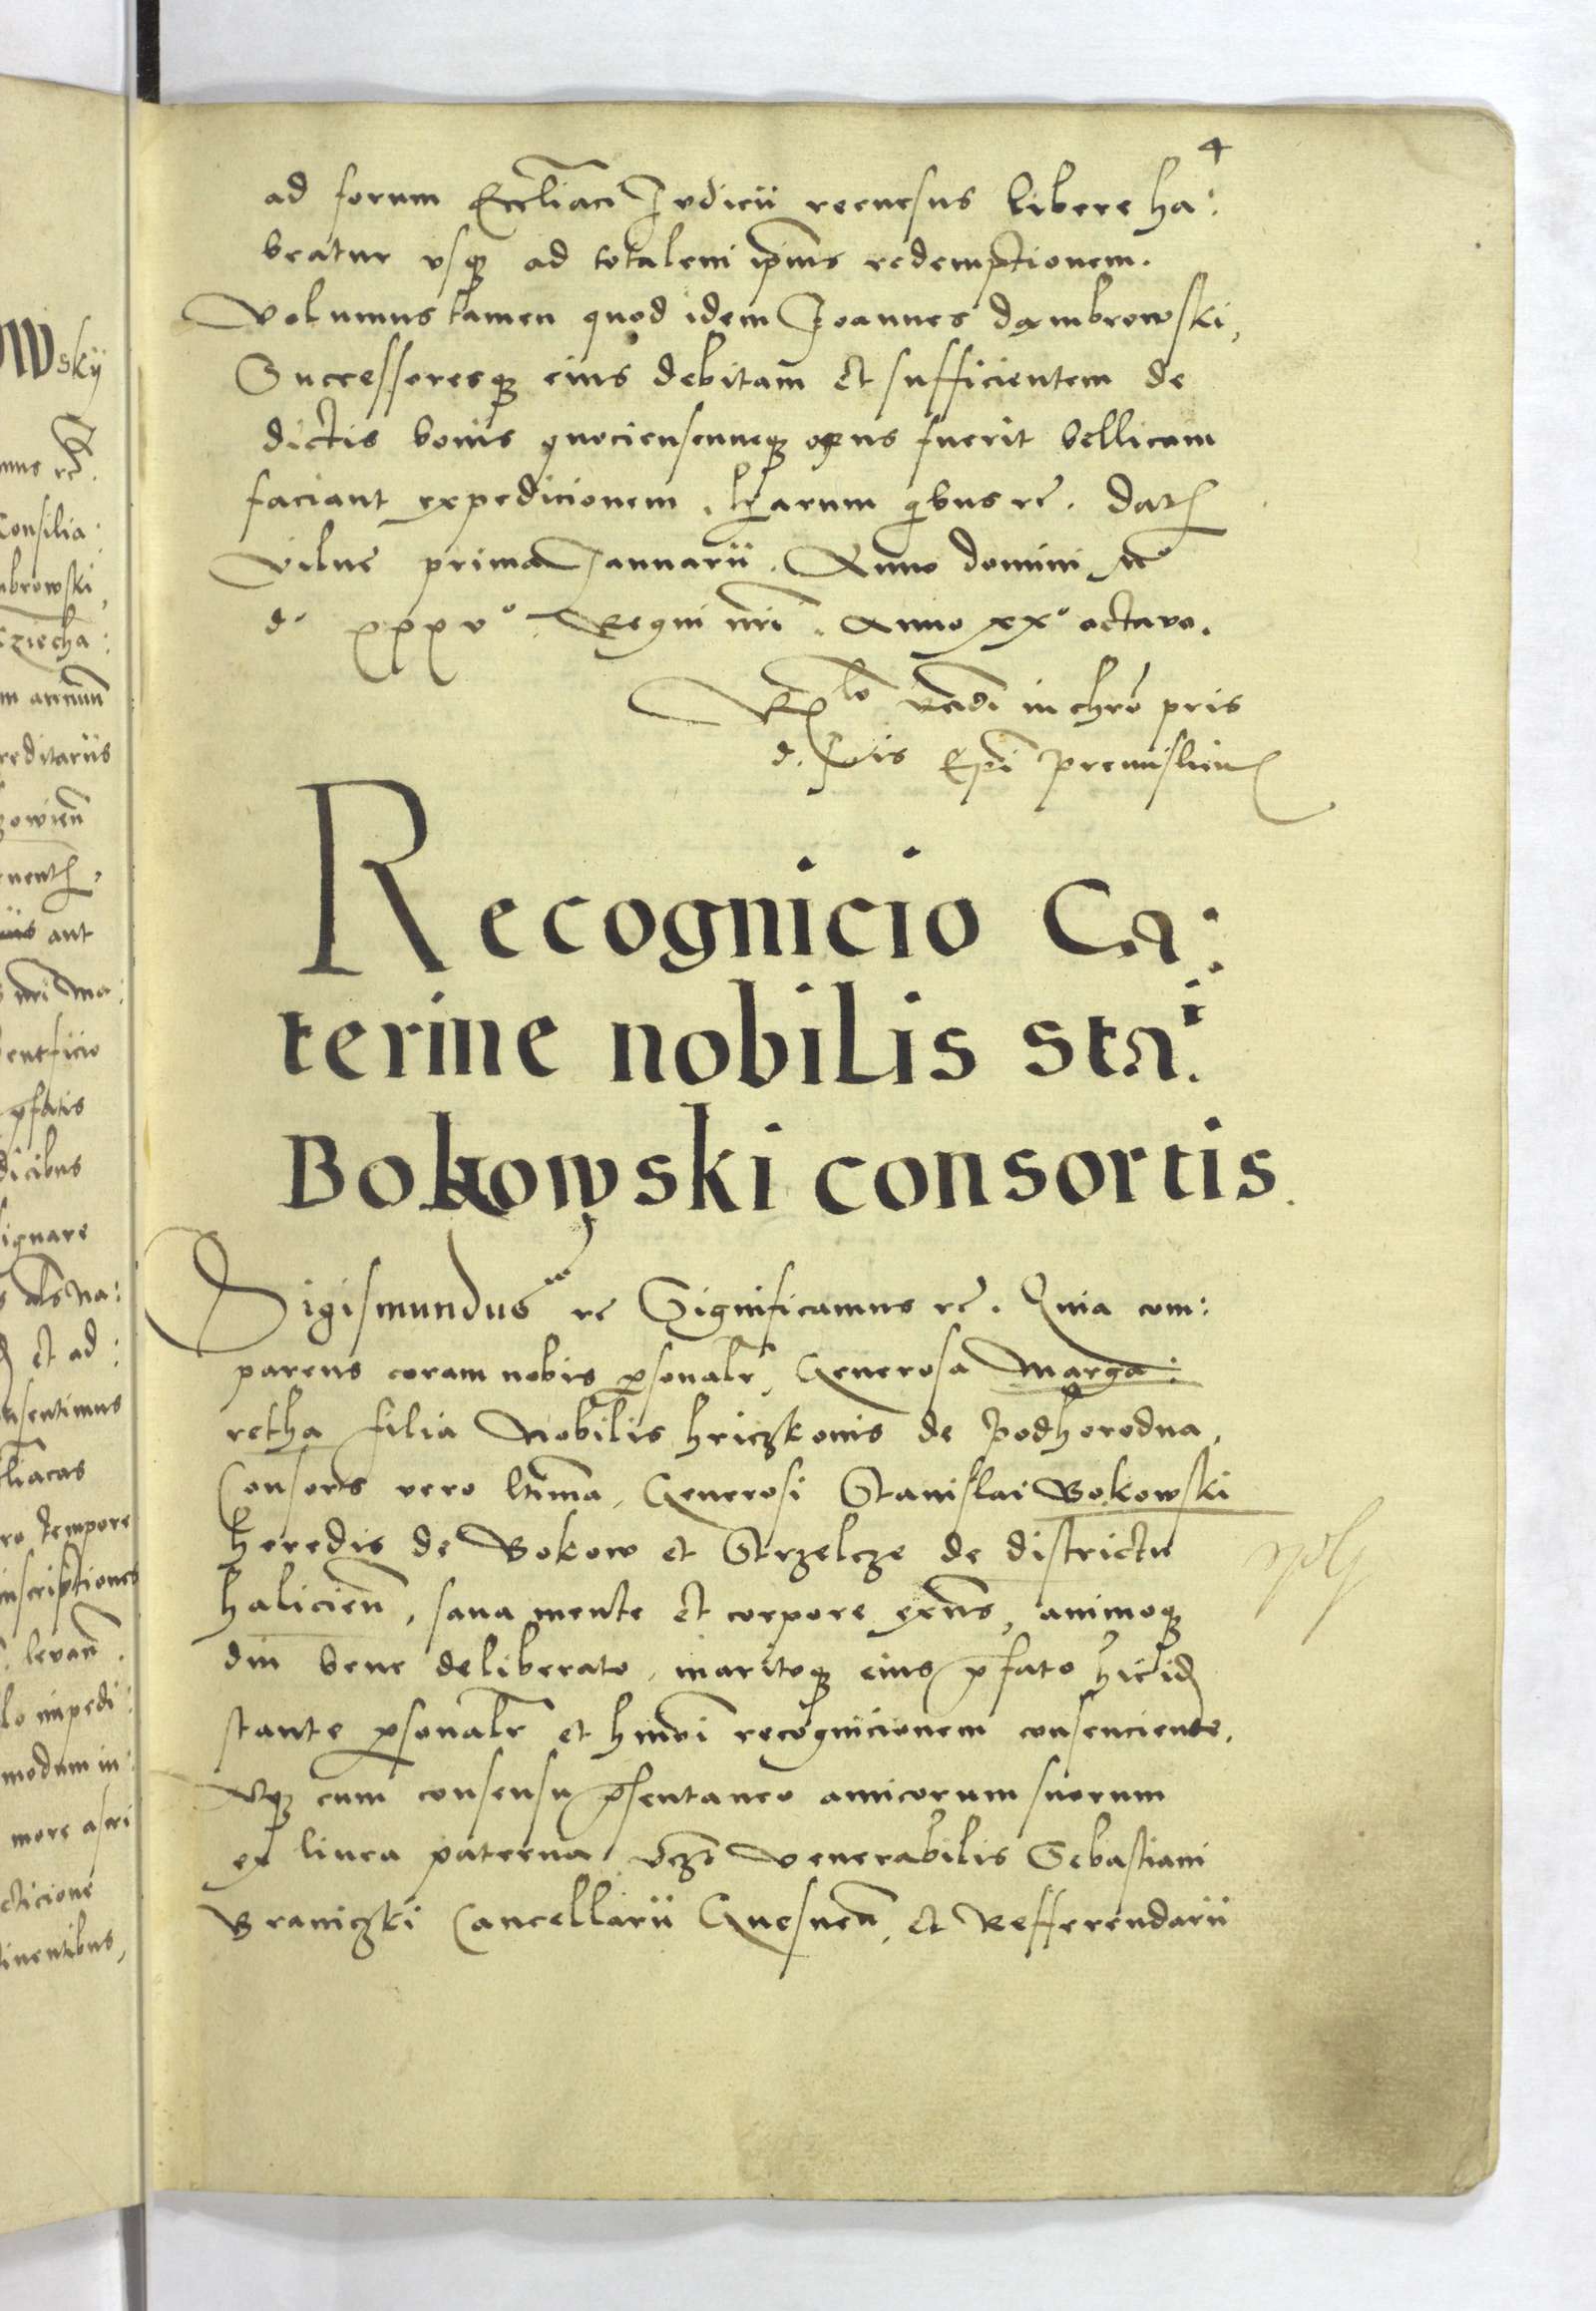 4
ad forum Ecclīaci Judicii recursus libere ha:
beatur usq3 ad totalem ipīus redemptionem.
Volumus tamen quod idem Joannes dąmbrowski,
Successoresq3 eius debitam et sufficientem de
dictis bonis quocienscunq3 opus fuerit bellicam
faciant expedicionem. lrarum qibus rc̄. Datȩ
Vilne prima Januarii. Anno domini Mo
do xxxvo. Regni nrī. Anno xxo octavo.
Rlō Rndī in chrō pris
d. Epī Premisliens
Recognicio Ca:
terine nobilis stai.
Bokowski consortis.
Sigismundus rc Significamus rc̄. Quia com:
parens coram nobis psonalr̄, Generosa Marga:
retha filia Nobilis hriczkonis de Podhorodna,
Consors vero ltīma, Generosi Stanislai Bokowski
heredis de Bokow et Strzelcze de districtu
halicien̄, sana mente et corpore exn̄s, animoq3
diu bene deliberato, maritoq3 eius pfato hic id
stante psonalr̄ et hmōi recognicionem consenciente,
Utq3 cum consensu psentaneo amicorum suorum
ex linea paterna vcz3 Venerabilis Sebastiani
Braniczki Cancellarii Gnesnen̄, et Refferendarii